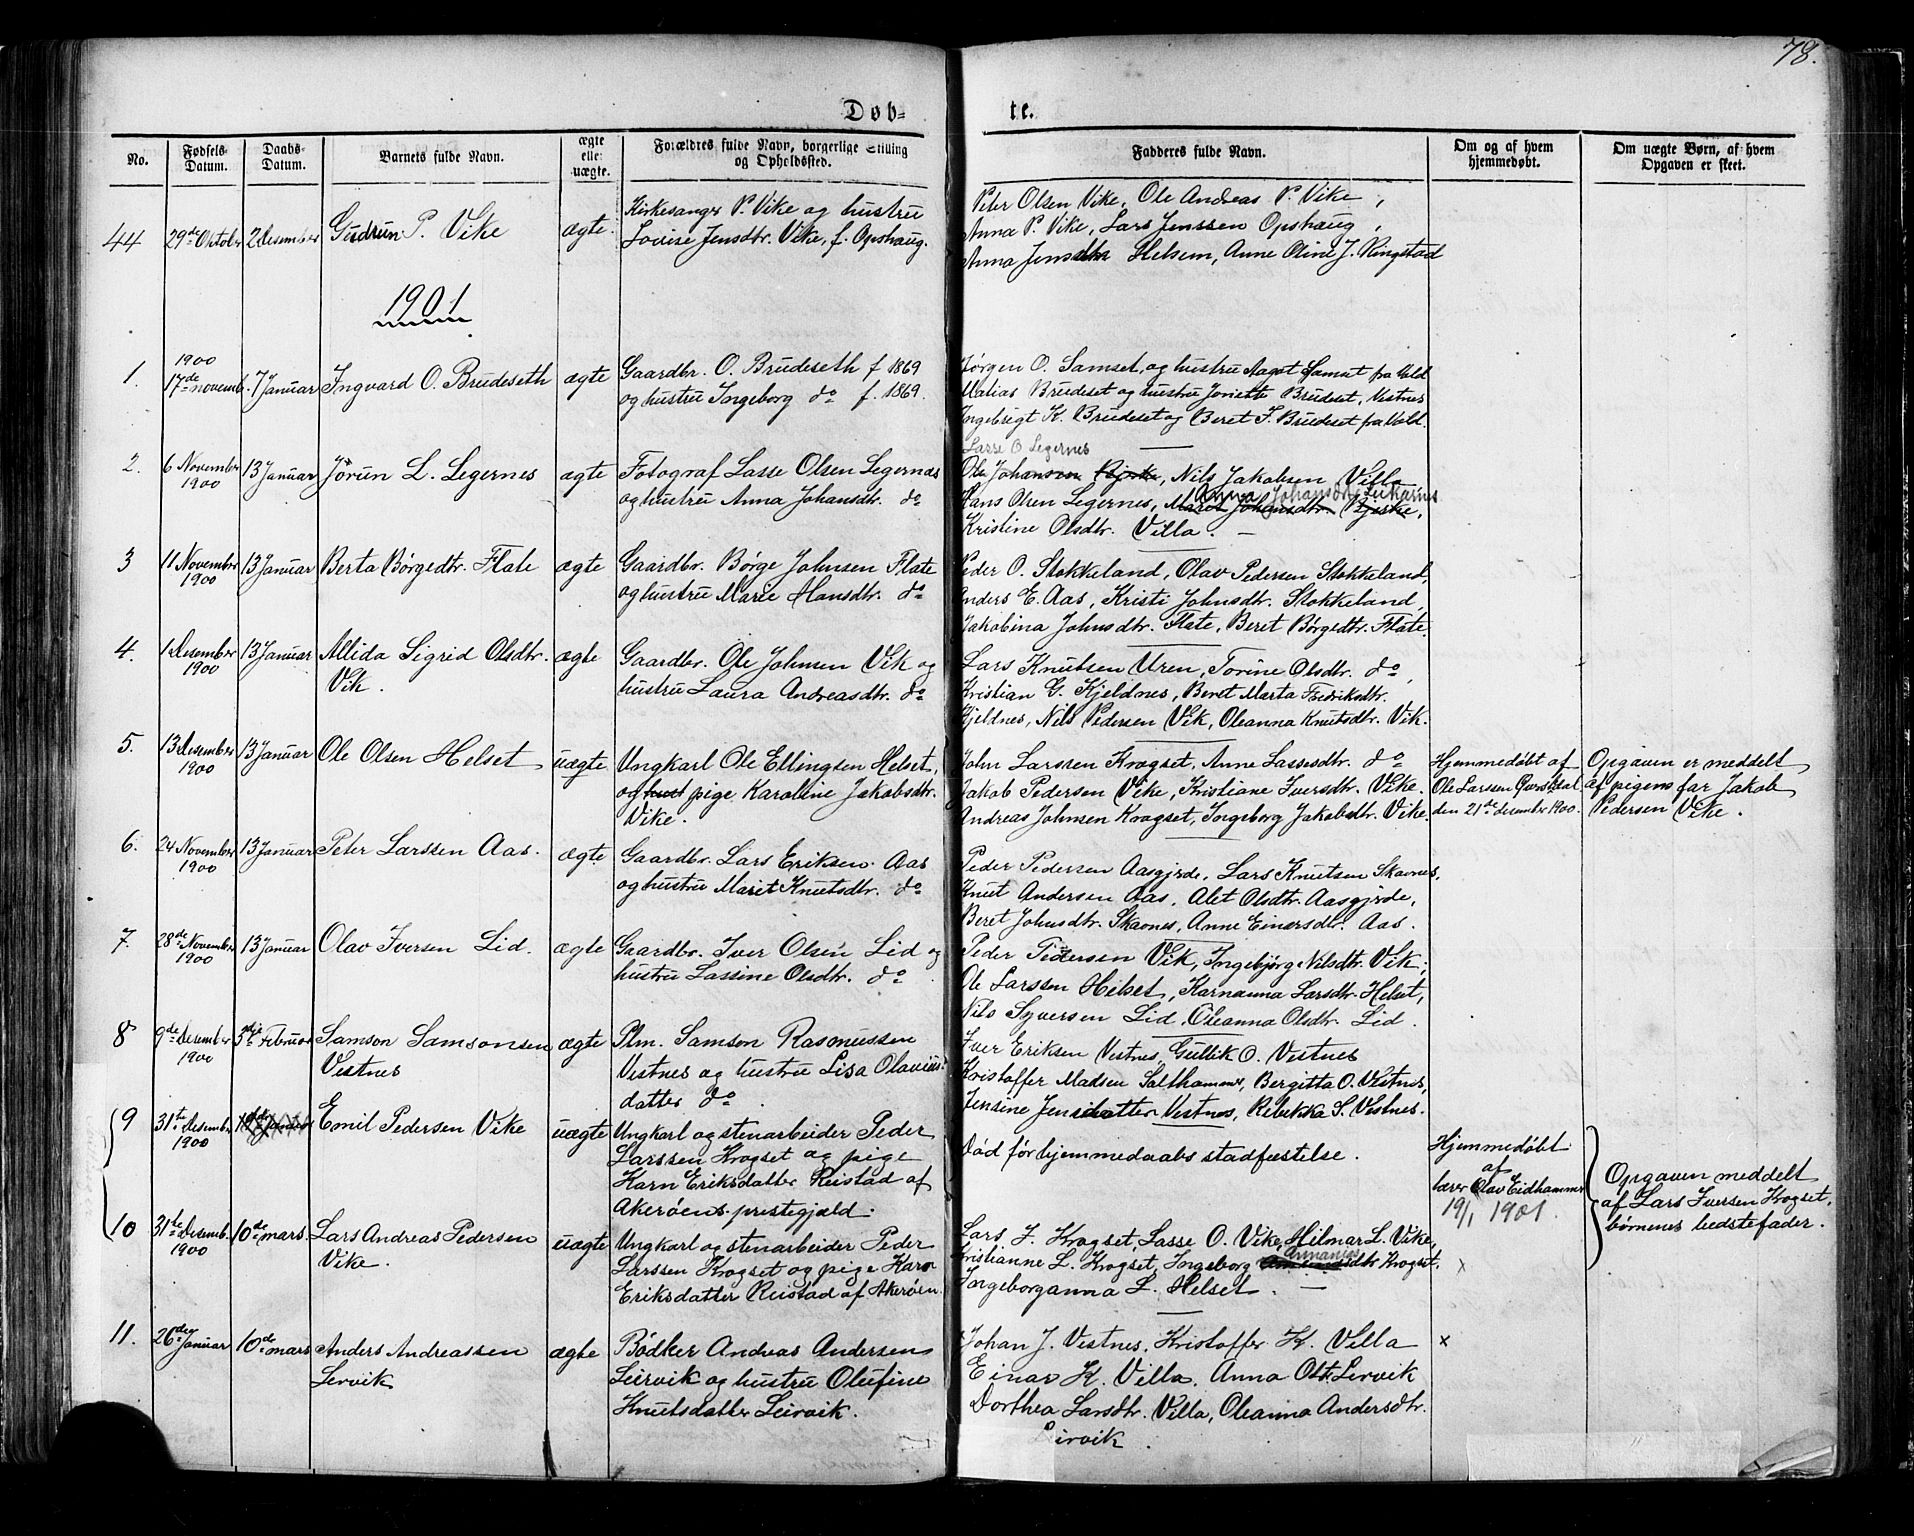 78.
Døbte.
No.
Fødsels-Datum.
Daabs-Datum.
Barnets fulde Navn.
ægte elle: uægte.
Forældres fulde Navn, borgerlige Stilling og Opholdssted.
Fadderes fulde Navn.
Om og af hvem hjemmedøbt.
Om uægte Børn, af hvem Opgaven er skeet.
44 29de Oktober 2 desember Gudrun P. Vike ægte.
Kirkesanger P. Vike og hustru
Lovise Jensdtr. Vike, f. Opshaug.
Peter Olsen Vike, Ole Andreas P. Vike,
Anna P. Vike, Lars Jenssen Opshaug,
Anna Jensdtr Helsem, Anne Oline J. Ringstad
1901
1. 1900 17de novemb. 7 Januar Ingvard O. Brudeseth ægte
Gaardbr. O. Brudeseth f 1869
og hustru Ingeborg do f. 1869.
Jørgen O. Samset, og hustru Aagot Samset fra Vold
Matias Brudeset og hustru Joniette Brudeset, Vestnes
Ingebrigt K. Brudeset og Beret I. Brudeset fra Vold.
2. 6 November 1900 13 Januar Jørun L. Legernes ægte
Fotograf Lasse Olsen Legernæs
og hustru Anna Johansdtr. do
Lasse O Legernes
Ole Johansen Bjerke, Nils Jakobsen Villa
Anna Johansdtr
Hans Olsen Legernes, Maret Johansdtr. Bjerke,
Kristine Olsdtr. Villa.
3 11 November 1900 13 Januar Berta Børgedtr. Flate ægte
Gaardbr. Børge Johnsen Flate
og hustru Marie Hansdtr. do
Peder O. Stokkeland, Olav Pedersen Stokkeland,
Anders E. Aas, Kristi Johnsdtr. Stokkeland,
Jakobina Johnsdtr. Flate, Beret Børgedtr. Flate.
4. 1 desember 1900 13 Januar Allida Sigrid Olsdtr. Vik. ægte
Gaardbr. Ole Johnsen Vik og
hustru Laura Andreasdtr. do
Lars Knutsen Uren, Torine Olsdtr. do,
Kristian G. Kjeldnes, Beret Marta Fredriksdtr.
Kjeldnes, Nils Pedersen Vik, Oleanna Knutsdtr. Vik.
5. 13 desember 1900 13 Januar Ole Olsen Helset uægte
Ungkarl Ole Ellingsen Helset,
og hust pige Karoline Jakobsdtr.
Vike.
John Larssen Krogset, Anne Lassesdtr. do
Jakob Pedersen Vike, Kristiane Iversdtr. Vike.
Andreas Johnsen Krogset, Ingeborg Jakobsdtr. Vike.
Hjemmedøbt af
Ole Larssen
den 21de desember 1900.
Opgaven er meddelt
af pigens far Jakob
Pedersen Vike.
6. 24 November 1900 13 Januar Peter Larssen Aas. ægte
Gaardbr. Lars Eriksen Aas
og hustru Marit Knutsdtr. do
Peder Pedersen Aasgjrde, Lars Knutsen Skavnes,
Knut Andersen Aas, Alet Olsdtr. Aasgjrde,
Beret Johnsdtr. Skavnes, Anne Einersdtr. Aas.
7. 28de November 1900 13 Januar Olav Iversen Lid. ægte
Gaardbr. Iver Olsen Lid og
hustru Lassine Olsdtr. do
Peder Pedersen Vik, Ingebjørg Nilsdtr. Vik,
Ole Larssen Helset, Karnanna Larsdtr. Helset,
Nils Syversen Lid, Oleanna Olsdtr. Lid.
8 9de desember 1900 3die Februar Samson Samsonsen Vestnes ægte
Plm. Samson Rasmussen
Vestnes og hustru Lisa Olavius
datter do
Iver Eriksen Vestnes, Gullik O. Vestnes
Kristoffer Madsen Salthammer, Bergitta O. Vestnes,
Jensine Jensdatter Vestnes, Rebekka S. Vestnes.
9 31te desember 1900 Emil Pedersen Vike uægte
Ungkarl og stenarbeider Peder
Larssen Krogset og pige
Karn Eriksdatter Reistad af
Akerøens prestegjæld.
Død før hjemmedaabs stadfæstelse.
Hjemmedøbt
af
lærer Olav Eidhammer
19/1 1901.
Opgaven meddelt
af Lars Iversen Krogset,
børnenes bedstefader.
10 31te Desemb. 1900 10de mars. Lars Andreas Pedersen Vike. uægte
Ungkarl og stenarbeider Peder
Larssen Krogset og pige Karn
Eriksdatter Reistad af Akerøen.
Lars I. Krogset, Lasse O. Vike, Hilmar L. Vike,
Kristianne L. Krogset, Ingeborg Annanias sdtr Krogset,
Ingeborganna L. Helset.
x
11. 26de Januar 10de mars Anders Andreassen Lervik ægte
Bødker Andreas Andersen
Leirvik og hustru Olufine
Knutsdatter Leirvik.
Johan J. Vestnes, Kristoffer K. Villa
Einar K. Villa, Anna Olst. Lervik
Dorthea Larsdtr. Villa, Oleanna Andersdtr.
Lirvik.
x